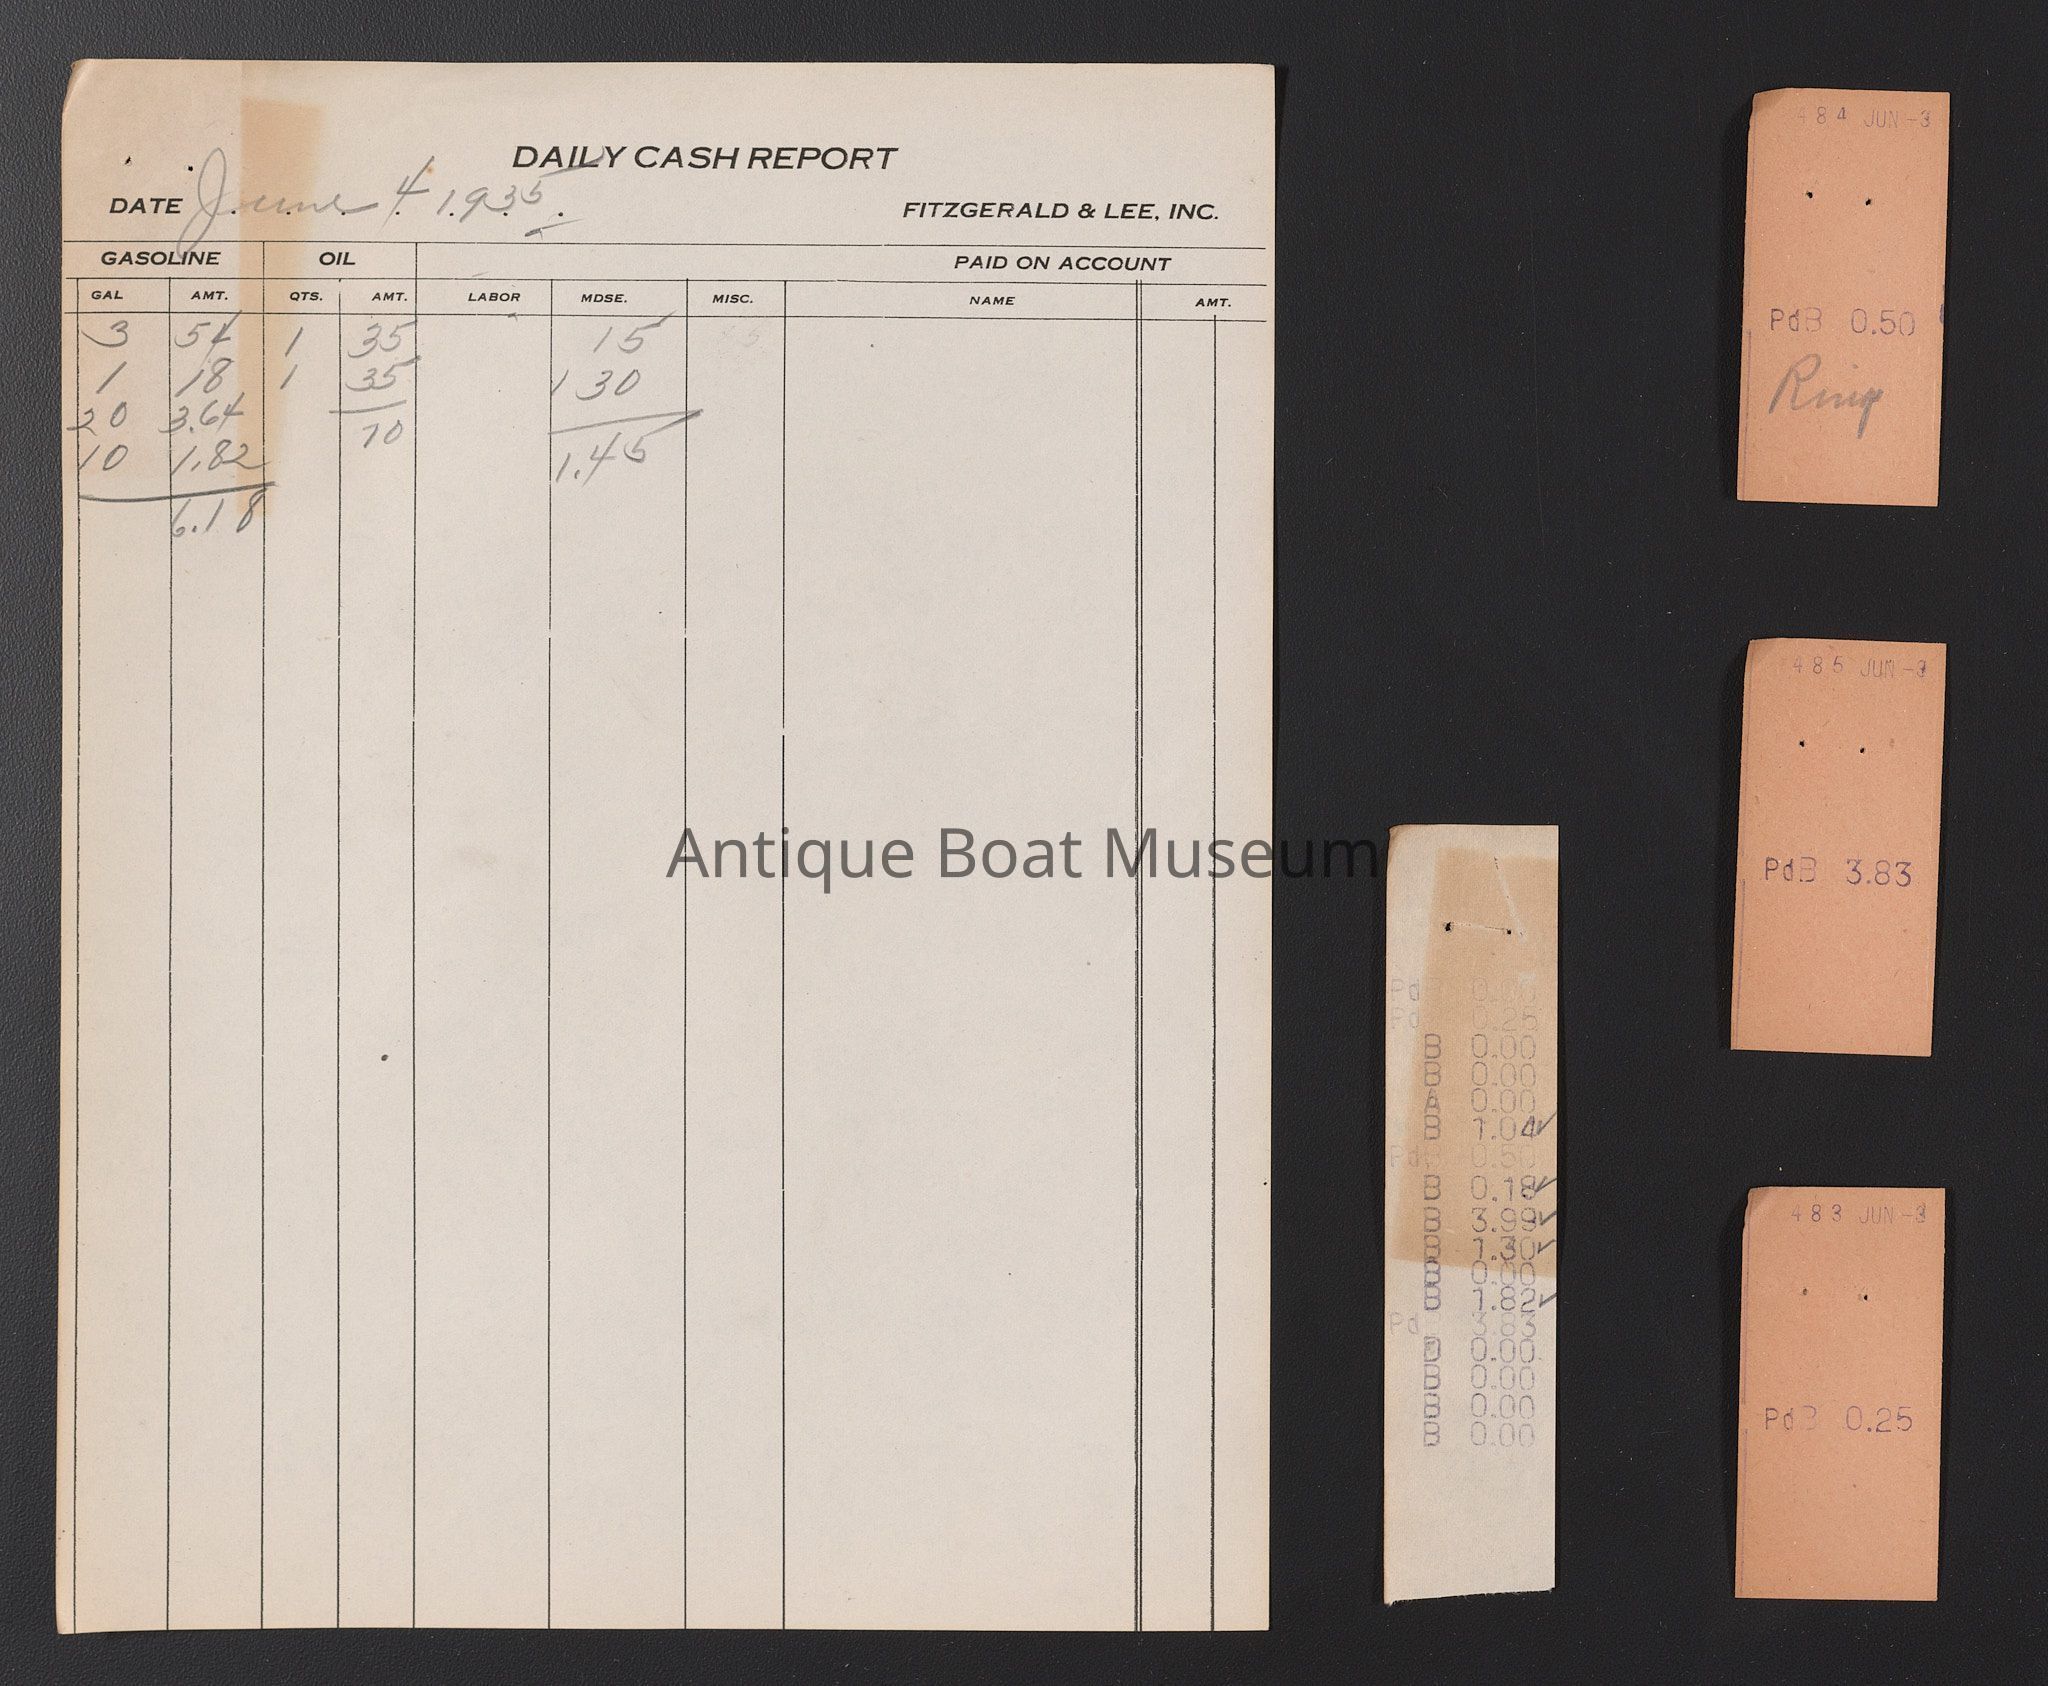 DAILY CASH REPORT
DATE June 4 1935
FITZGERALD & LEE, INC.
GASOLINE OIL PAID ON ACCOUNT
GAL AMT. QTS. AMT. LABOR MDSE. MISC. NAME AMT.
3 54 1 35 15
1 18 1 35 1 30
20 3.64 70
10 1.82 1.45
6.18
Antique Boat Museum
Pd
Pd 0.25
B 0.00
B 0.00
A 0.00
B 1.04✓
Pd 0.50
B 0.18✓
B 3.99✓
B 1.30✓
B 0.00
B 1.82✓
Pd 3.83
0.00
B 0.00
B 0.00
B 0.00
484 JUN-3
PdB 0.50
Ring
485 JUN-3
PdB 3.83
483 JUN-3
PdB 0.25